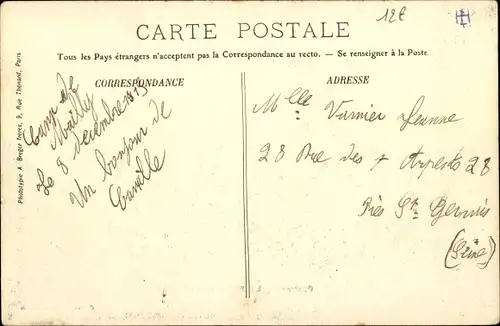 CARTE POSTALE
12€
Tous les Pays étrangers n'acceptent pas la Correspondance au recto. — Se renseigner à la Poste
CORRESPONDANCE
ADRESSE
Camp de
Mailly
Le 8 decembre 1913
Un bonjour de
Camille
Mlle Varnier Jeanne
28 Rue des 7 Arpents 28
Près St Gervais
(Seine)
Phototypie A. Breger frères, 9, Rue Thénard, Paris